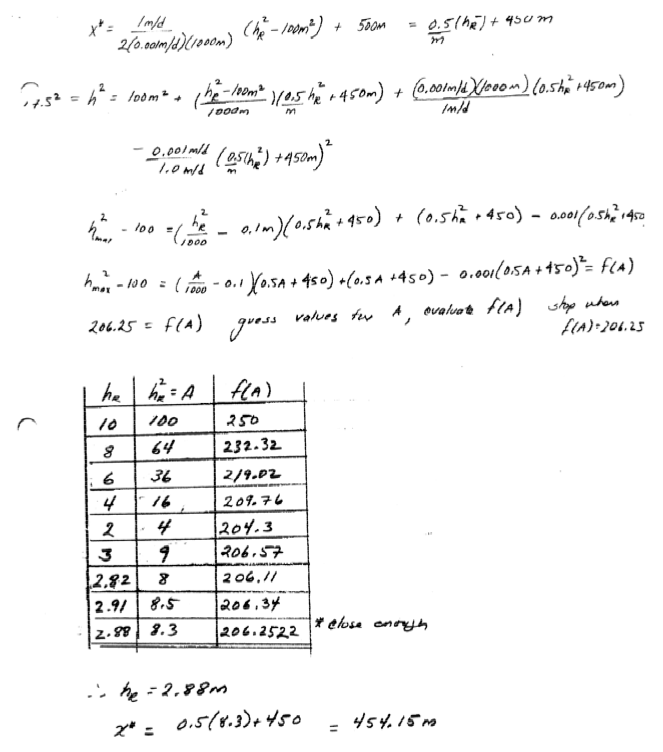 x* = 1m/d / 2(0.001m/d)(1000m) (h_R² - 100m²) + 500m = 0.5/m (h_R²) + 450m
17.5² = h² = 100m² + (h_R² - 100m² / 1000m)(0.5/m h_R² + 450m) + (0.001m/d)(1000m)/1m/d (0.5h_R² + 450m)
- 0.001m/d / 1.0m/d (0.5/m (h_R²) + 450m)²
h²max - 100 = (h_R²/1000 - 0.1m)(0.5h_R² + 450) + (0.5h_R² + 450) - 0.001(0.5h_R² + 450
h²max - 100 = (A/1000 - 0.1)(0.5A + 450) + (0.5A + 450) - 0.001(0.5A + 450)² = f(A)
206.25 = f(A) guess values for A, evaluate f(A) stop when
f(A)=206.25
h_R h_R² = A f(A)
10 100 250
8 64 232.32
6 36 219.02
4 16 209.76
2 4 204.3
3 9 206.57
2.82 8 206.11
2.91 8.5 206.34
2.88 8.3 206.2522 * close enough
∴ h_R = 2.88m
x* = 0.5(8.3) + 450 = 454.15m